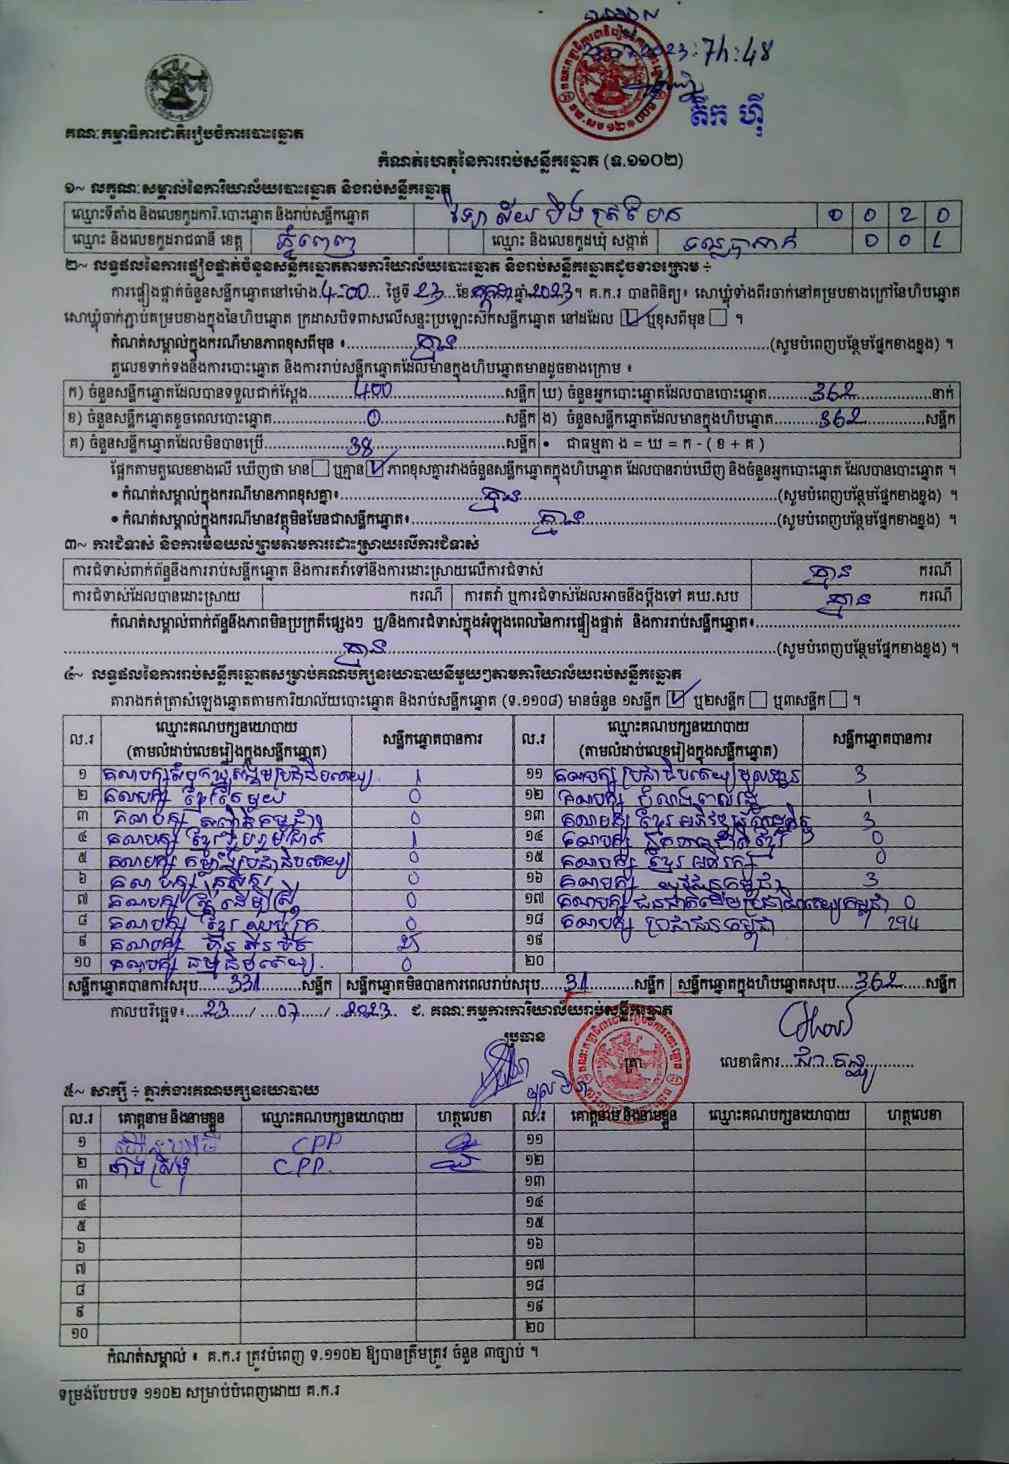 7h:48
តឹក ហ៊ី
គណៈកម្មាធិការជាតិរៀបចំការបោះឆ្នោត
កំណត់ហេតុនៃការរាប់សន្លឹកឆ្នោត (ទ.១១០២)
១~ លក្ខណៈសម្គាល់នៃការិយាល័យបោះឆ្នោត និងរាប់សន្លឹកឆ្នោត
ឈ្មោះទីតាំង និងលេខកូដការិ.បោះឆ្នោត និងរាប់សន្លឹកឆ្នោត វិទ្យាល័យ បឹងត្របែក 0 0 2 0
ឈ្មោះ និងលេខកូដរាជធានី ខេត្ត ភ្នំពេញ ឈ្មោះ និងលេខកូដឃុំ សង្កាត់
២~ លទ្ធផលនៃការផ្ទៀងផ្ទាត់ចំនួនសន្លឹកឆ្នោតតាមការិយាល័យបោះឆ្នោត និងរាប់សន្លឹកឆ្នោតដូចខាងក្រោម ÷
ការផ្ទៀងផ្ទាត់ចំនួនសន្លឹកឆ្នោតនៅម៉ោង 4:00 ថ្ងៃទី 23 ខែ កក្កដា ឆ្នាំ 2023 ។ គ.ក.រ បានពិនិត្យ៖ សោឃ្លុំទាំងពីរចាក់នៅគម្របខាងក្រៅនៃហិបឆ្នោត
សោឃ្លុំចាក់ភ្ជាប់គម្របខាងក្នុងនៃហិបឆ្នោត ក្រដាសបិទពាសលើសន្ទះប្រឡោះស៊កសន្លឹកឆ្នោត នៅដដែល ☑ ឬខុសពីមុន ☐ ។
កំណត់សម្គាល់ក្នុងករណីមានភាពខុសពីមុន ៖ គ្មាន (សូមបំពេញបន្ថែមផ្នែកខាងខ្នង) ។
តួលេខទាក់ទងនឹងការបោះឆ្នោត និងការរាប់សន្លឹកឆ្នោតដែលមានក្នុងហិបឆ្នោតមានដូចខាងក្រោម ៖
ក) ចំនួនសន្លឹកឆ្នោតដែលបានទទួលជាក់ស្តែង 400 សន្លឹក ឃ) ចំនួនអ្នកបោះឆ្នោតដែលបានបោះឆ្នោត 362 នាក់
ខ) ចំនួនសន្លឹកឆ្នោតខូចពេលបោះឆ្នោត 0 សន្លឹក ង) ចំនួនសន្លឹកឆ្នោតដែលមានក្នុងហិបឆ្នោត 362 សន្លឹក
គ) ចំនួនសន្លឹកឆ្នោតដែលមិនបានប្រើ 38 សន្លឹក • ជាធម្មតា ង = ឃ = ក - ( ខ + គ )
ផ្អែកតាមតួលេខខាងលើ ឃើញថា មាន ☐ ឬគ្មាន ☑ ភាពខុសគ្នារវាងចំនួនសន្លឹកឆ្នោតក្នុងហិបឆ្នោត ដែលបានរាប់ឃើញ និងចំនួនអ្នកបោះឆ្នោត ដែលបានបោះឆ្នោត ។
• កំណត់សម្គាល់ក្នុងករណីមានភាពខុសគ្នា៖ គ្មាន (សូមបំពេញបន្ថែមផ្នែកខាងខ្នង) ។
• កំណត់សម្គាល់ក្នុងករណីមានវត្ថុមិនមែនជាសន្លឹកឆ្នោត៖ គ្មាន (សូមបំពេញបន្ថែមផ្នែកខាងខ្នង) ។
៣~ ការជំទាស់ និងការមិនយល់ព្រមតាមការដោះស្រាយលើការជំទាស់
ការជំទាស់ពាក់ព័ន្ធនឹងការរាប់សន្លឹកឆ្នោត និងការតវ៉ាទៅនឹងការដោះស្រាយលើការជំទាស់ គ្មាន ករណី
ការជំទាស់ដែលបានដោះស្រាយ ករណី ការតវ៉ា ឬការជំទាស់ដែលអាចនឹងប្តឹងទៅ គឃ.សប គ្មាន ករណី
កំណត់សម្គាល់ពាក់ព័ន្ធនឹងភាពមិនប្រក្រតីផ្សេងៗ ឬ/និងការជំទាស់ក្នុងអំឡុងពេលនៃការផ្ទៀងផ្ទាត់ និងការរាប់សន្លឹកឆ្នោត៖
គ្មាន (សូមបំពេញបន្ថែមផ្នែកខាងខ្នង) ។
៤~ លទ្ធផលនៃការរាប់សន្លឹកឆ្នោតសម្រាប់គណបក្សនយោបាយនីមួយៗតាមការិយាល័យរាប់សន្លឹកឆ្នោត
តារាងកត់ត្រាសំឡេងឆ្នោតតាមការិយាល័យបោះឆ្នោត និងរាប់សន្លឹកឆ្នោត (ទ.១១០៨) មានចំនួន ១សន្លឹក ☑ ឬ២សន្លឹក ☐ ឬ៣សន្លឹក ☐ ។
ល.រ ឈ្មោះគណបក្សនយោបាយ (តាមលំដាប់លេខរៀងក្នុងសន្លឹកឆ្នោត) សន្លឹកឆ្នោតបានការ ល.រ ឈ្មោះគណបក្សនយោបាយ (តាមលំដាប់លេខរៀងក្នុងសន្លឹកឆ្នោត) សន្លឹកឆ្នោតបានការ
១ គណបក្សសំបុកឃ្មុំសង្គមប្រជាធិបតេយ្យ 1 ១១ គណបក្សប្រជាធិបតេយ្យមូលដ្ឋាន 3
២ គណបក្ស ខ្មែរតែមួយ 0 ១២ គណបក្ស 1
៣ គណបក្ស សញ្ជាតិកម្ពុជា 0 ១៣ គណបក្ស ខ្មែរអភិវឌ្ឍន៍សេដ្ឋកិច្ច 3
៤ គណបក្ស ខ្មែររួបរួមជាតិ 1 ១៤ គណបក្ស 0
៥ គណបក្ស កម្លាំងប្រជាធិបតេយ្យ 0 ១៥ គណបក្ស ខ្មែរអភិរក្ស 0
៦ គណបក្ស កសិករ 0 ១៦ គណបក្ស យុវជនកម្ពុជា 3
៧ គណបក្ស ស្ត្រីដើម្បីស្ត្រី 0 ១៧ គណបក្ស ជនជាតិដើមប្រជាធិបតេយ្យកម្ពុជា 0
៨ គណបក្ស ខ្មែរឈប់ក្រ 0 ១៨ គណបក្ស ប្រជាជនកម្ពុជា 294
៩ គណបក្ស ហ្វ៊ុនស៊ិនប៉ិច 25 ១៩
១០ គណបក្ស ធម្មាធិបតេយ្យ 0 ២០
សន្លឹកឆ្នោតបានការសរុប 331 សន្លឹក សន្លឹកឆ្នោតមិនបានការពេលរាប់សរុប 31 សន្លឹក សន្លឹកឆ្នោតក្នុងហិបឆ្នោតសរុប 362 សន្លឹក
កាលបរិច្ឆេទ៖ 23 / 07 / 2023 ជ. គណៈកម្មការការិយាល័យរាប់សន្លឹកឆ្នោត
ប្រធាន
ត្រា
លេខាធិការ
៥~ សាក្សី ÷ ភ្នាក់ងារគណបក្សនយោបាយ
ល.រ គោត្តនាម និងនាមខ្លួន ឈ្មោះគណបក្សនយោបាយ ហត្ថលេខា ល.រ គោត្តនាម និងនាមខ្លួន ឈ្មោះគណបក្សនយោបាយ ហត្ថលេខា
១ CPP ១១
២ CPP. ១២
៣ ១៣
៤ ១៤
៥ ១៥
៦ ១៦
៧ ១៧
៨ ១៨
៩ ១៩
១០ ២០
កំណត់សម្គាល់ ៖ គ.ក.រ ត្រូវបំពេញ ទ.១១០២ ឱ្យបានត្រឹមត្រូវ ចំនួន ៣ច្បាប់ ។
ទម្រង់បែបបទ ១១០២ សម្រាប់បំពេញដោយ គ.ក.រ